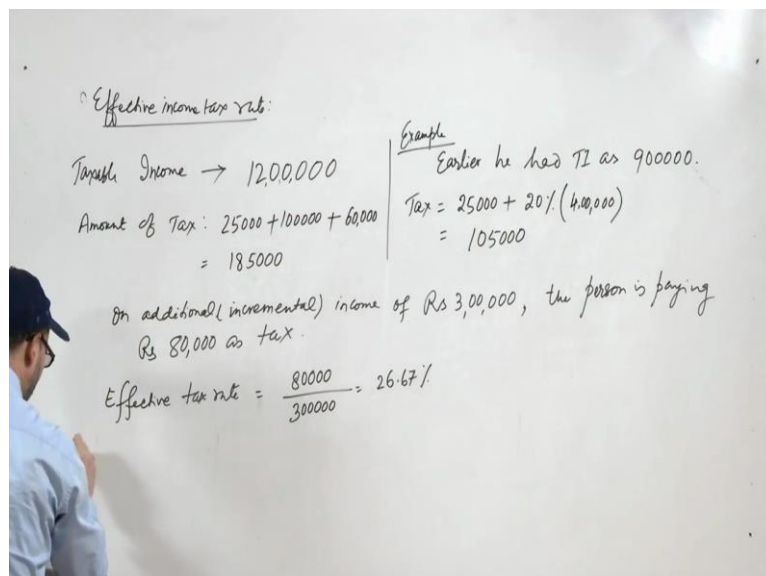 Effective income tax rate:
Taxable Income → 12,00,000
Amount of Tax: 25000 + 100000 + 60,000
= 185000
Example
Earlier he had TI as 900000.
Tax = 25000 + 20% (4,00,000)
= 105000
On additional (incremental) income of Rs 3,00,000, the person is paying
Rs 80,000 as tax.
Effective tax rate = 80000/300000 = 26.67%